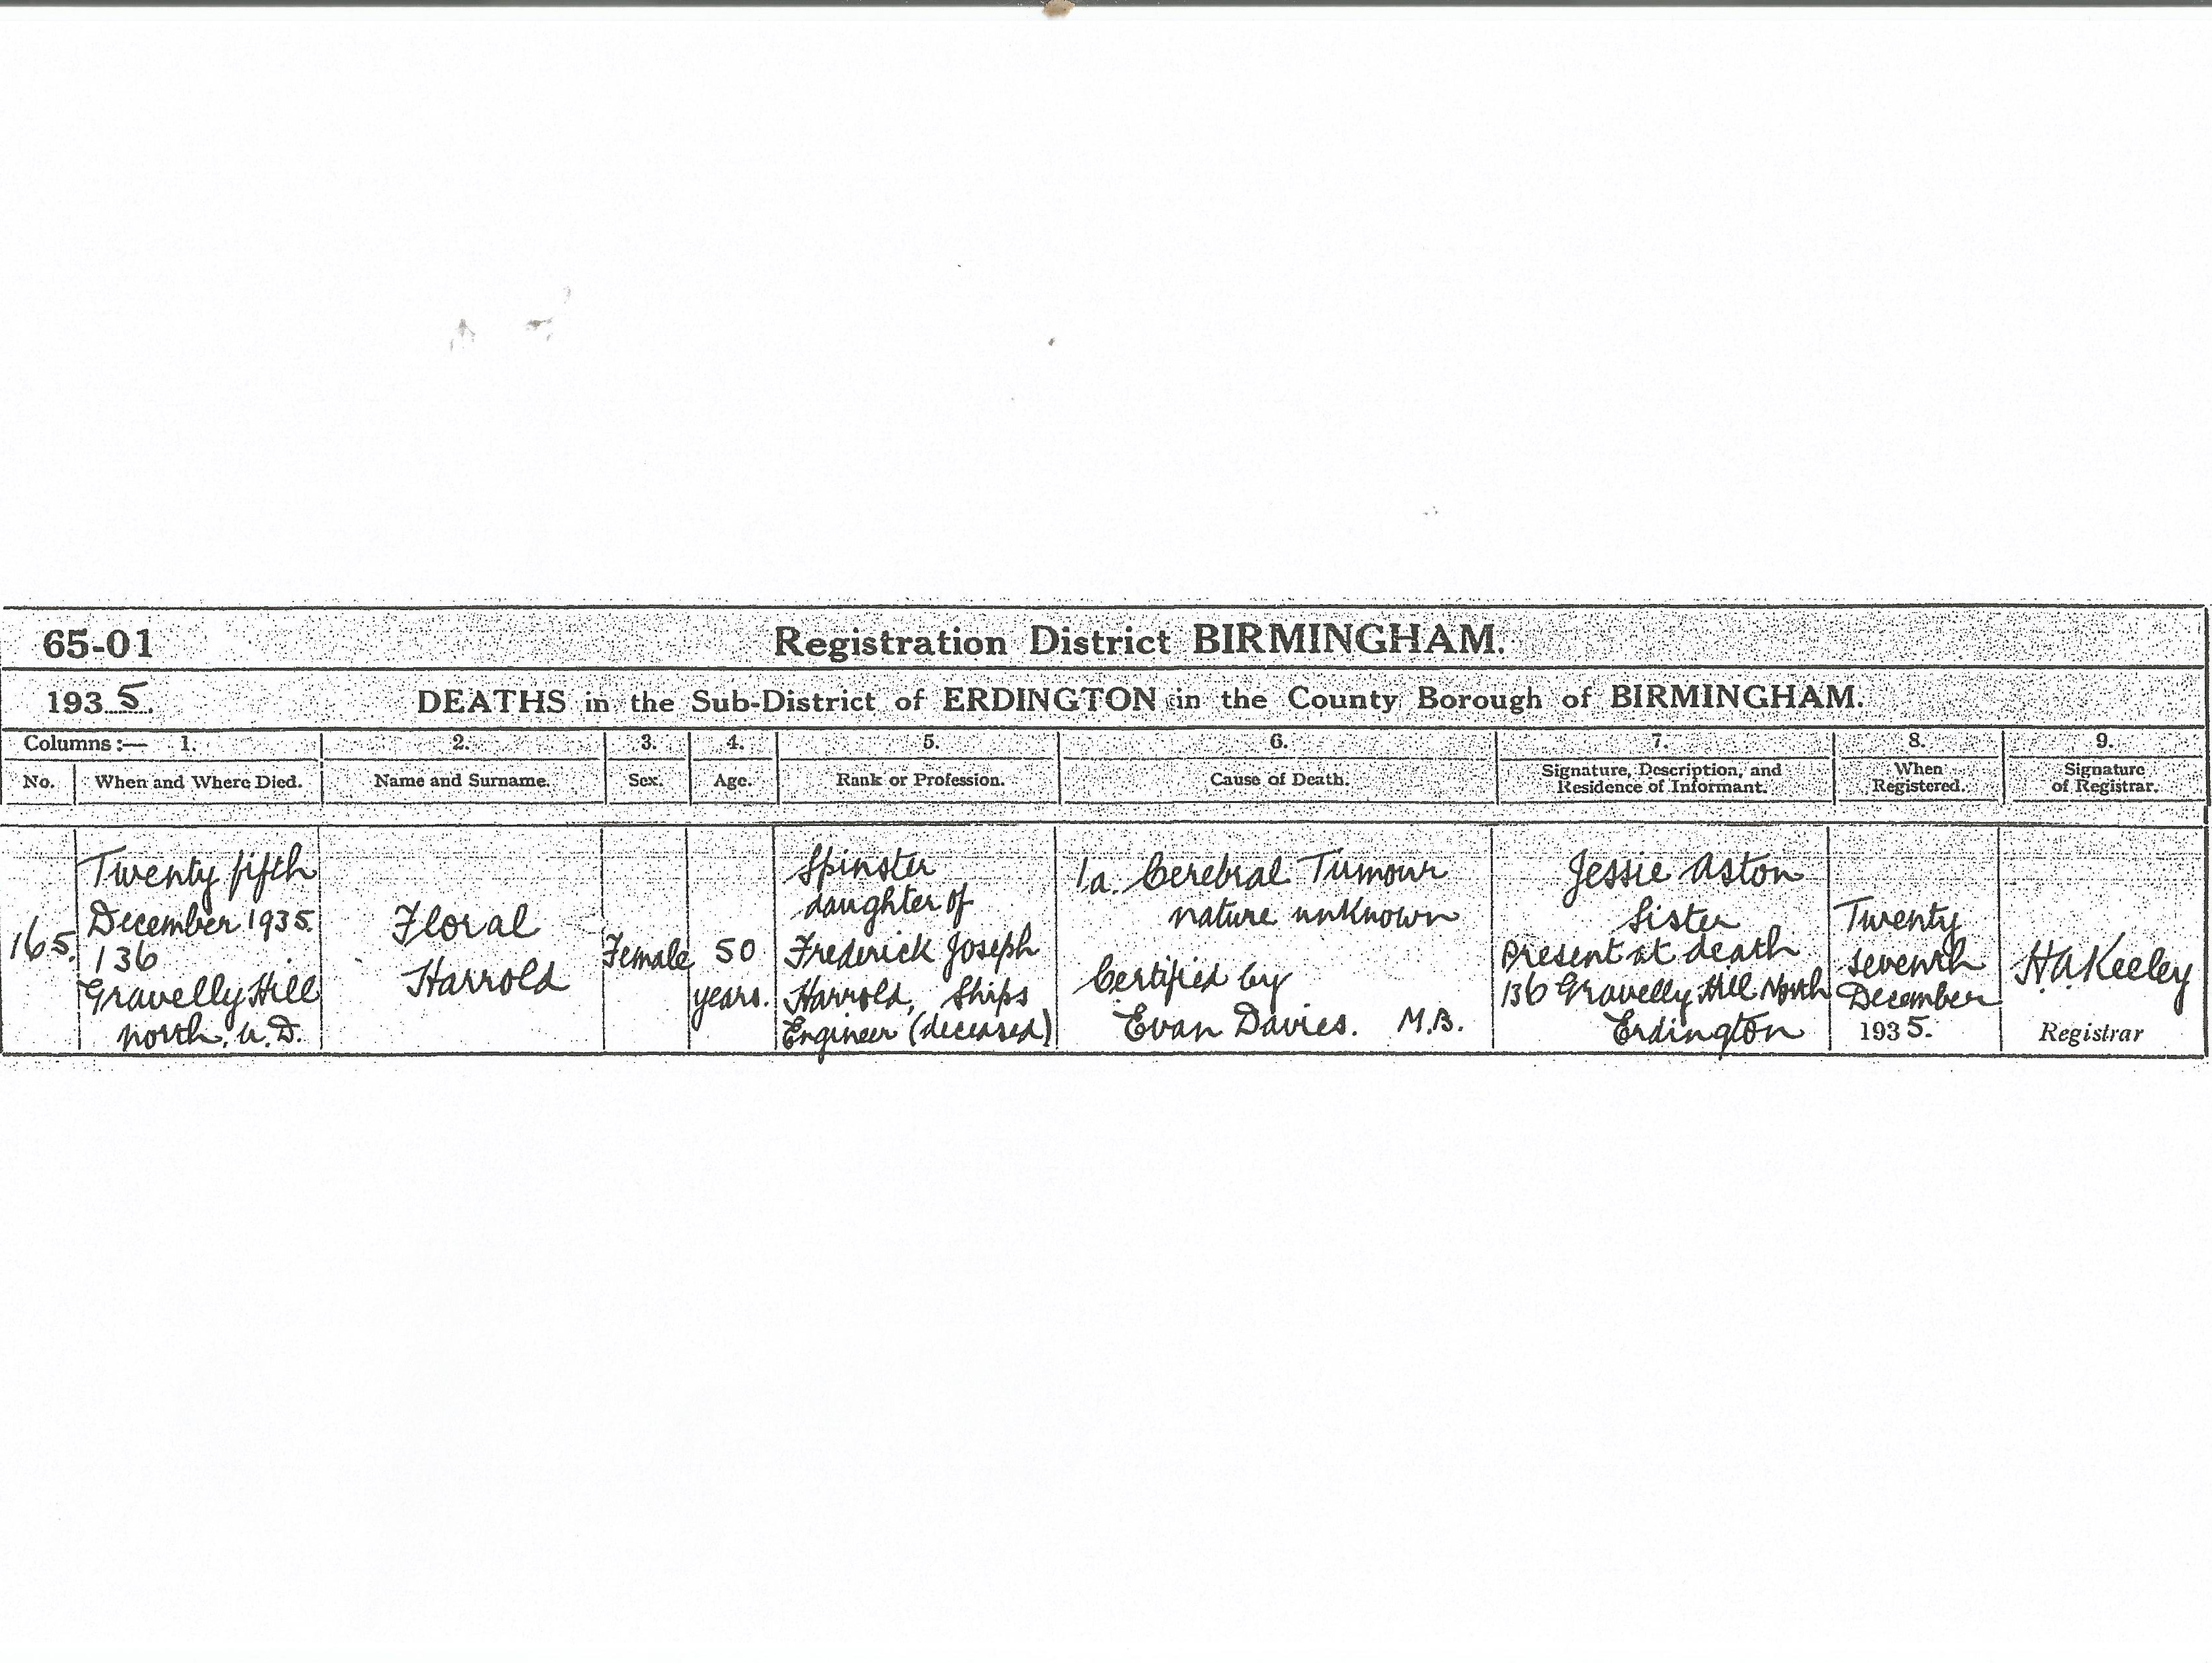 65-01 Registration District BIRMINGHAM.
193 5. DEATHS in the Sub-District of ERDINGTON in the County Borough of BIRMINGHAM.
Columns:— 1. 2. 3. 4. 5. 6. 7. 8. 9.
No. When and Where Died. Name and Surname. Sex. Age. Rank or Profession. Cause of Death. Signature, Description, and Residence of Informant. When Registered. Signature of Registrar.
165.
Twenty fifth
December 1935.
136
Gravelly Hill
north. U.D.
Floral
Harrold
Female
50
years.
Spinster
daughter of
Frederick Joseph
Harrold, Ships
Engineer (deceased)
1a. Cerebral Tumour
nature unknown
Certified by
Evan Davies. M.B.
Jessie Aston
Sister
Present at death
136 Gravelly Hill North
Erdington
Twenty
seventh
December
1935.
H.A. Keeley
Registrar